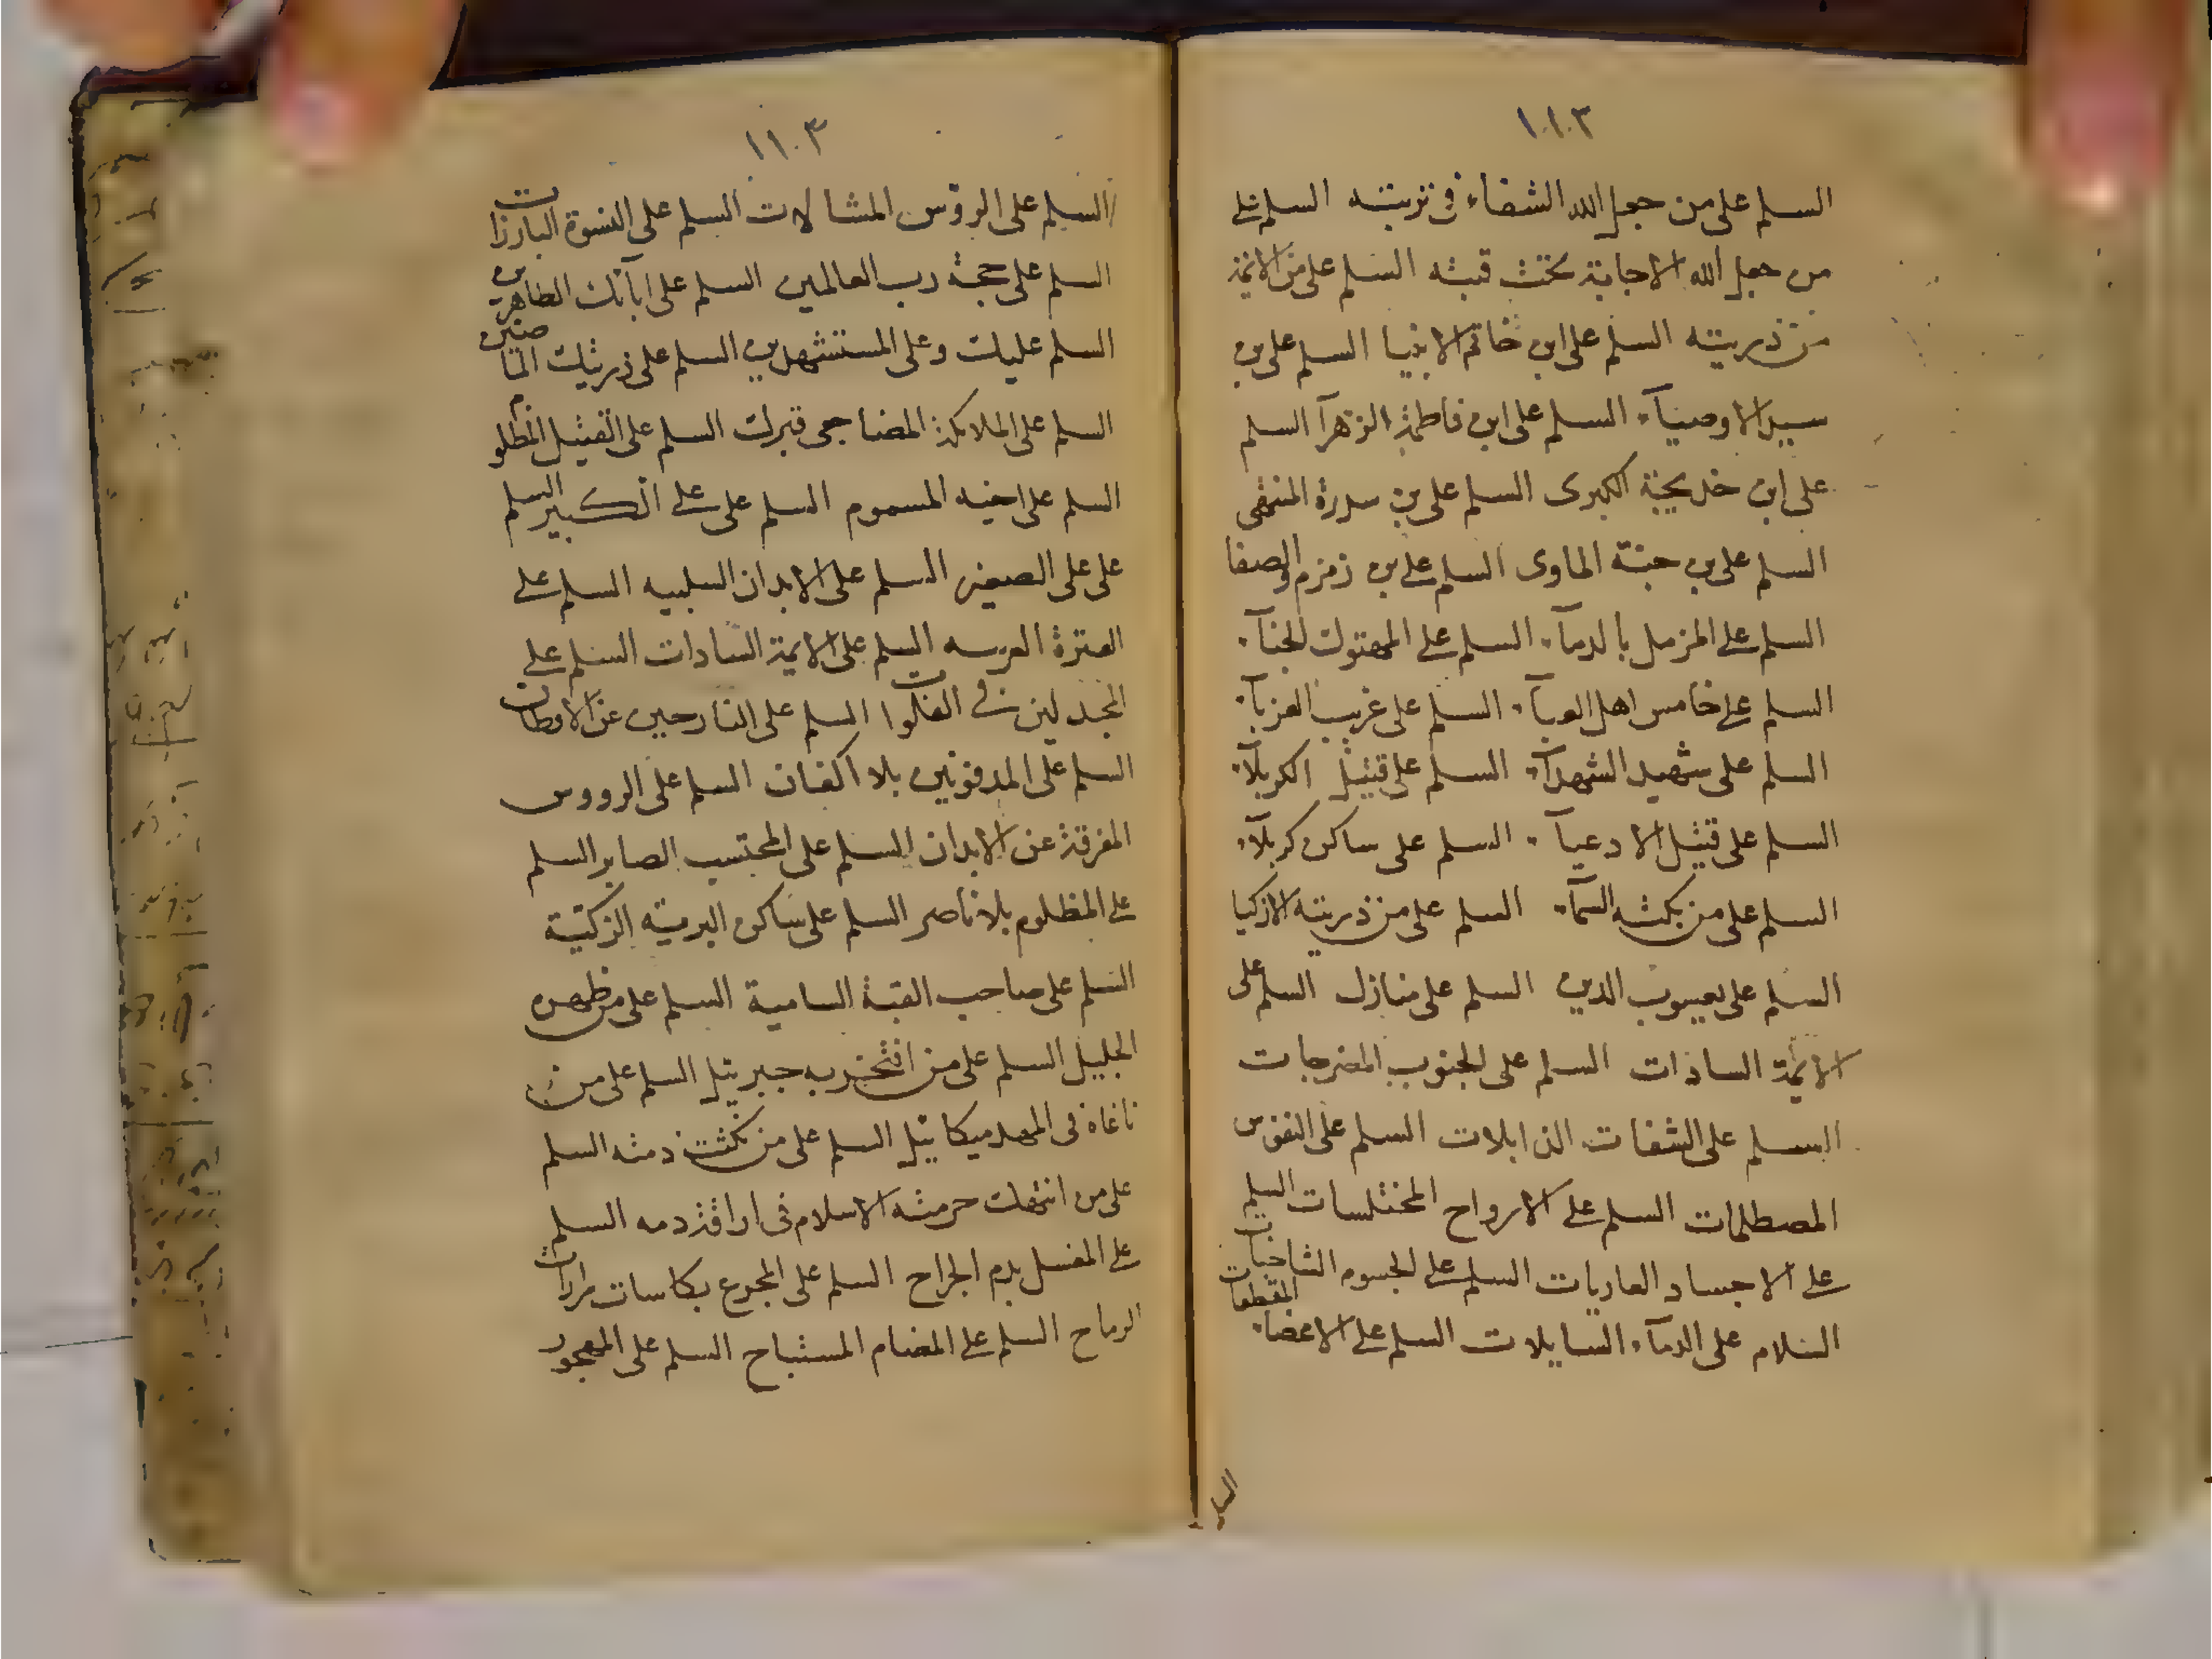 ١١٠٢
السلم على من جعل الله الشفاء في تربته السلم على
من جعل الله الاجابة تحت قبته السلم على من الائمة
من ذريته السلم على ابن خاتم الانبيا السلم على بن
سيد الاوصيآء السلم على ابن فاطمة الزهرآ السلم
على ابن خديجة الكبرى السلم على بن سدرة المنتهى
السلم على بن جنة الماوى السلم على بن زمزم والصفا
السلم على المزمل بالدمآء السلم على المهتوك الخبآء
السلم على خامس اهل العبآء السلم على غريب الغربآء
السلم على شهيد الشهدآء السلم على قتيل الكربلآء
السلم على قتيل الادعيآء السلم على ساكن كربلآء
السلم على من بكته السمآء السلم على من ذريته الازكيا
السلم على يعسوب الدين السلم على منازل السلم على
الائمة السادات السلم على الجنوب المضرجات
السلم على الشفات الذابلات السلم على النفوس
المصطلمات السلم على الارواح المختلسات السلم
على الاجساد العاريات السلم على الجسوم الشاحبات
السلام على الدمآء السايلات السلم على الاعضاء المقطعات
السلم
١١٠٣
السلم على الروس المشالات السلم على النسوة البارزات
السلم على حجة رب العالمين السلم على ابآئك الطاهرين
السلم عليك وعلى المستشهدين السلم على ذريتك الناصرين
السلم على الملائكة المضاجعى قبرك السلم على القتيل المظلوم
السلم على اخيه المسموم السلم على على الكبير السلم
على على الصغير السلم على الابدان السليبه السلم على
العترة القريبه السلم على الايمة السادات السلم على
المجدلين في الفلوات السلم على النازحين عن الاوطان
السلم على المدفونين بلا اكفان السلم على الرووس
المفرقة عن الابدان السلم على المحتسب الصابر السلم
على المظلوم بلا ناصر السلم على ساكن التربة الزكية
السلم على صاحب القبة السامية السلم على من طهره
الجليل السلم على من افتخر به جبرئيل السلم على من
ناغاه في المهد ميكائيل السلم على من نكثت ذمته السلم
على من انتهكت حرمته الاسلام في اراقة دمه السلم
على المغسل بدم الجراح السلم على المجرع بكاسات مرارات
الرماح السلم على المضام المستباح السلم على المهجور